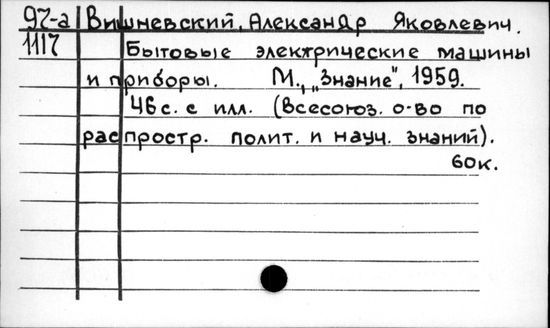 97-а Вишневский, Александр Яковлевич.
1117 Бытовые электрические машины
и приборы. М., „Знание", 1959.
46с. с илл. (Всесоюз. о-во по
распростр. полит. и науч. знаний).
60к.